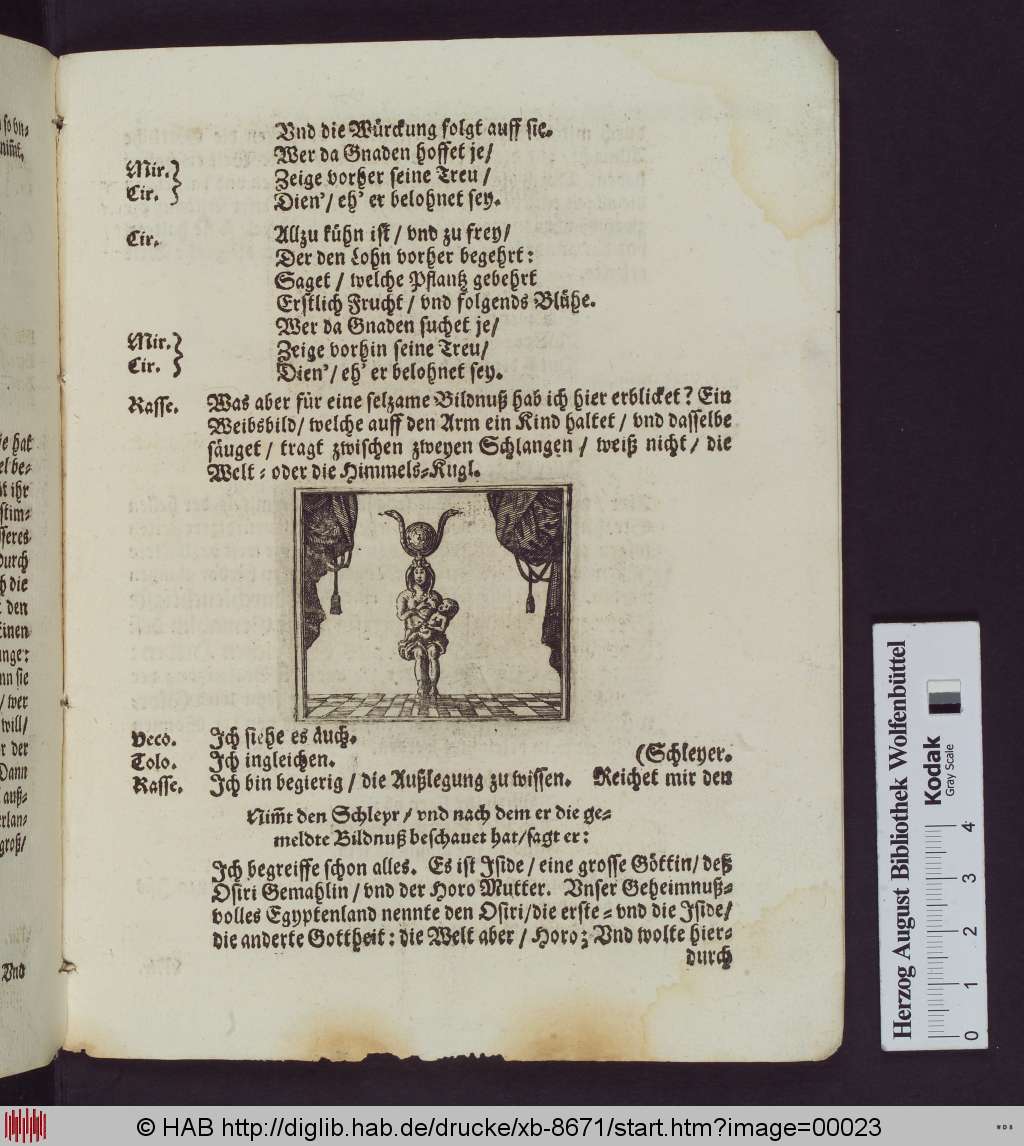 Vnd die Würckung folgt auff sie.
Wer da Gnaden hoffet je/
Mir.} Zeige vorher seine Treu /
Cir. } Dien’/ eh’ er belohnet sey.
Cir. Allzu kühn ist / vnd zu frey/
Der den Lohn vorher begehrt:
Saget / welche Pflantz gebehrt
Erstlich Frucht / vnd folgends Blühe.
Wer da Gnaden suchet je/
Mir.} Zeige vorhin seine Treu/
Cir. } Dien’/ eh’ er belohnet sey.
Rasse. Was aber für eine selzame Bildnuß hab ich hier erblicket? Ein
Weibsbild/ welche auff den Arm ein Kind haltet / vnd dasselbe
säuget / tragt zwischen zweyen Schlangen / weiß nicht / die
Welt- oder die Himmels-Kugl.
Veco. Ich siehe es auch.
Tolo. Ich ingleichen. (Schleyer.
Rasse. Ich bin begierig / die Außlegung zu wissen. Reichet mir den
Nim̃t den Schleyr / vnd nach dem er die ge-
meldte Bildnuß beschauet hat/sagt er:
Ich begreiffe schon alles. Es ist Iside / eine grosse Göttin/ deß
Osiri Gemahlin / vnd der Horo Mutter. Vnser Geheimnuß-
volles Egyptenland nennte den Osiri/die erste- vnd die Iside/
die anderte Gottheit: die Welt aber / Horo; Vnd wolte hier-
durch
so vn-
nim̃t.
hat
be-
ihr
stim-
durch
die
den
inge:
sie
wer
will/
der
Dann
auß-
groß/
Vnd
Herzog August Bibliothek Wolfenbüttel
Kodak
Gray Scale
0 1 2 3 4
© HAB http://diglib.hab.de/drucke/xb-8671/start.htm?image=00023